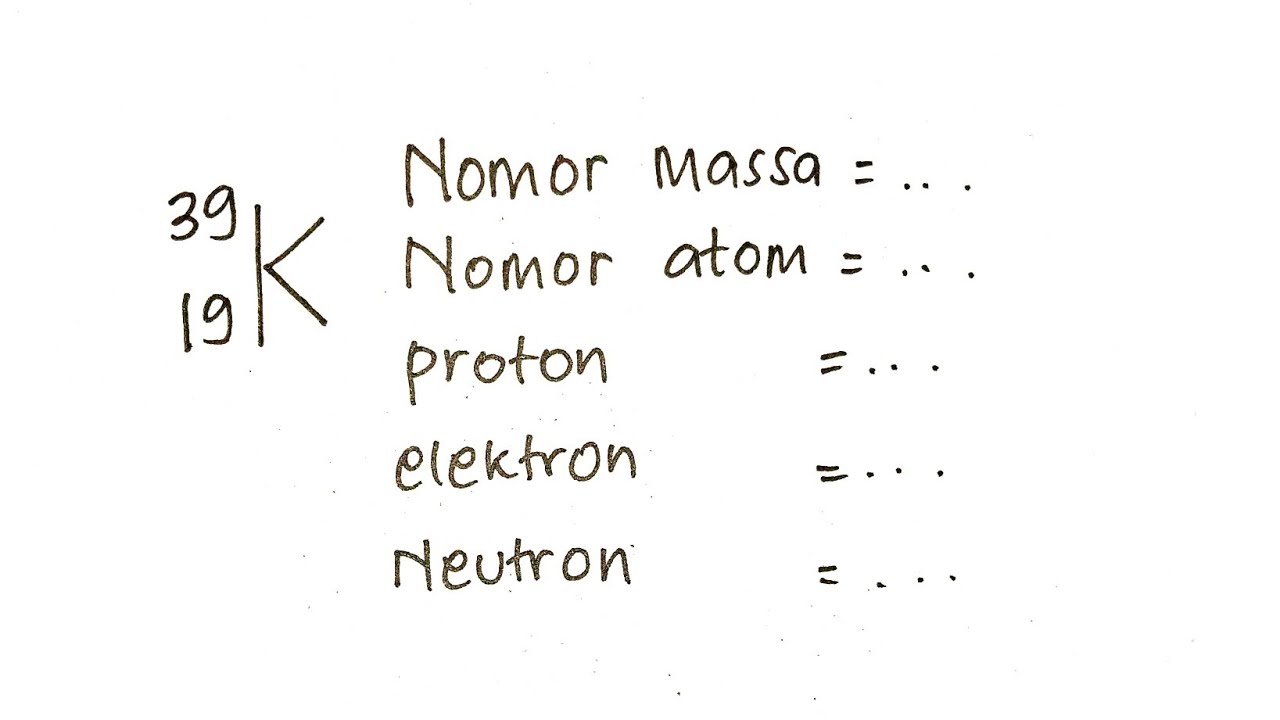 39
19 K
Nomor Massa = ...
Nomor atom = ...
proton = ...
elektron = ...
Neutron = ...